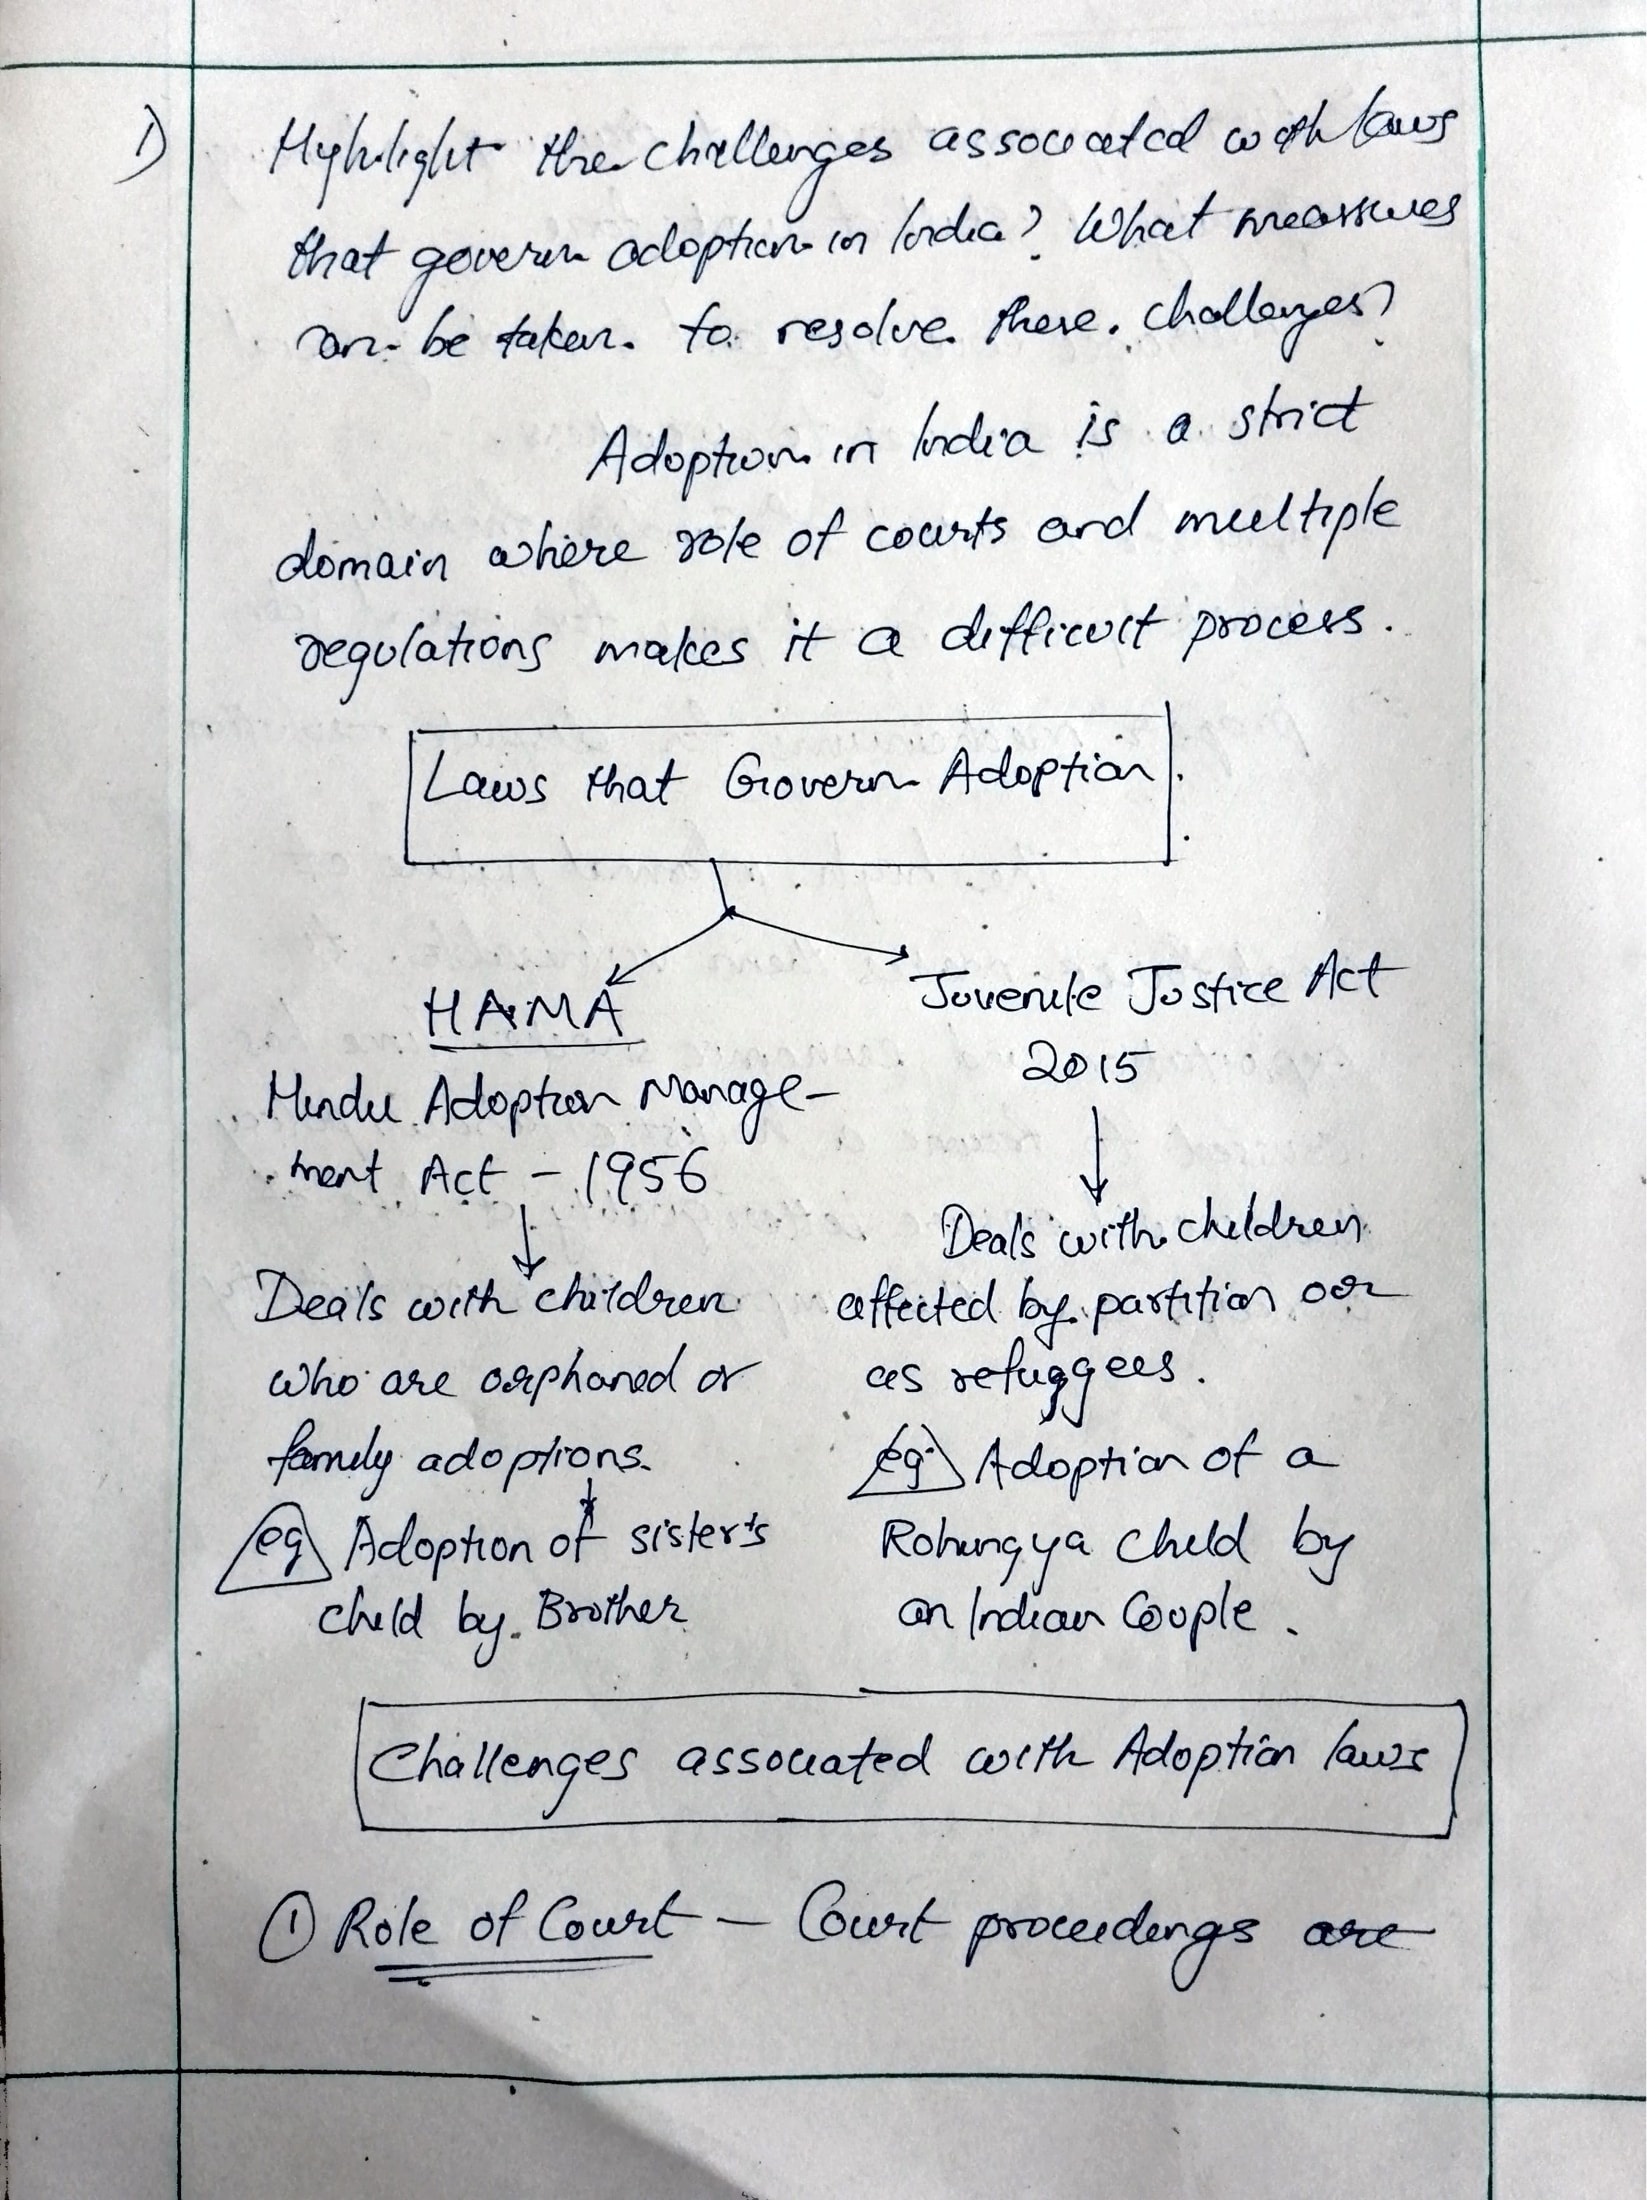 1) Highlight the challenges associated with laws
that govern adoption in India? What measures
can be taken to resolve these challenges?
Adoption in India is a strict
domain where role of courts and multiple
regulations makes it a difficult process.
Laws that Govern Adoption
HAMA
Hindu Adoption Manage-
ment Act - 1956
Deals with children
who are orphaned or
family adoptions.
eg Adoption of sister's
child by Brother
Juvenile Justice Act
2015
Deals with children
affected by partition or
as refuggees.
eg. Adoption of a
Rohingya child by
an Indian Couple.
Challenges associated with Adoption laws
① Role of Court - Court proceedings are